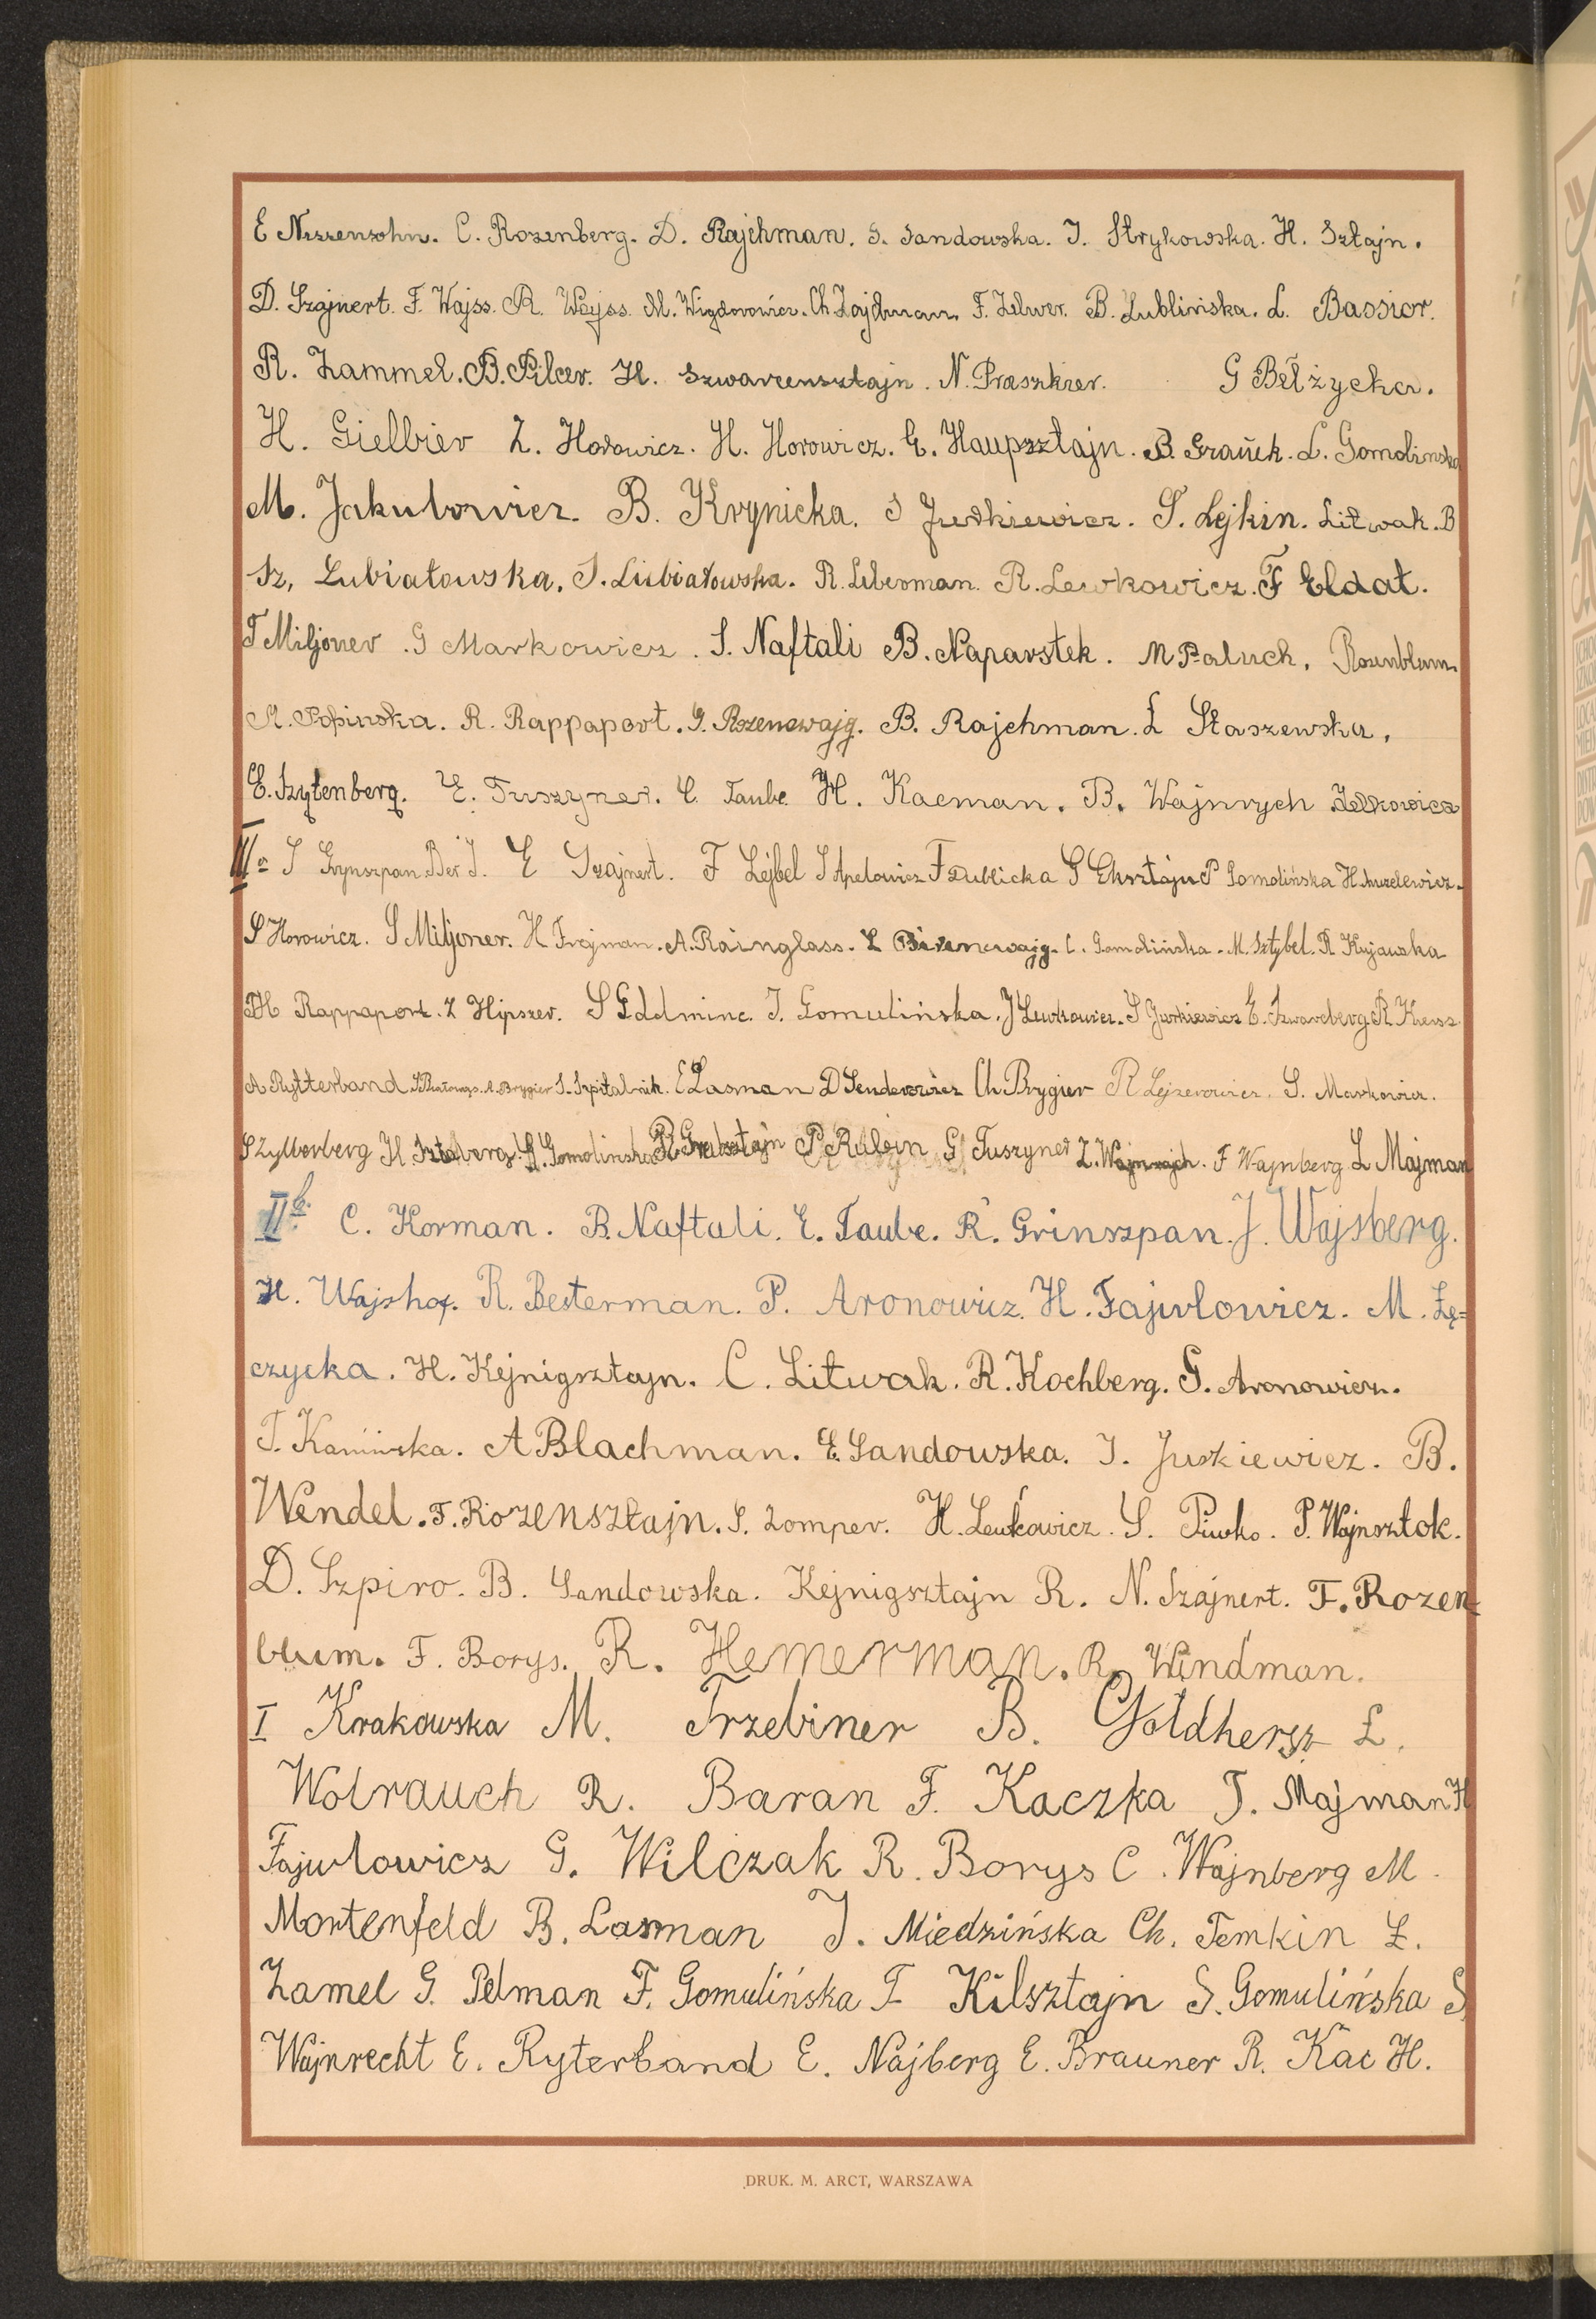 E Nissensohn. C. Rozenberg. D. Rajchman. S. Sandowska. I. Strykowska. H. Sztajn.
D. Szajnert. F. Wajss. R. Wajss. M. Wigdorowicz. Ch Zajdman. F. Zelwer. B. Lublińska. L. Bassior.
R. Zammel. B. Pilcer. H. Szwarcensztajn. N. Praszkier. G Bełżycka.
H. Gielbier Z. Horowicz. H. Horowicz. E. Haupsztajn. B. L. Gomolinska
M. Jakubowicz. B. Krynicka. S Juskiewicz. S. Lejkin. Litwak. B
Sz. Lubiatowska, S. Lubiatowska. R. Liberman. R. Lewkowicz. F Eldat.
T Miljoner. G Markowicz. S. Naftali B. Naparstek. M Paluch. Rozenblum.
R. Rappaport. G. Rozencwajg. B. Rajchman. L Staszewska,
E. Szytenberg. E. Tuszyner. C. Taube H. Kacman. B. Wajnrych Zelkowicz
III a S Grynszpan Ber J. E Szajnert. F Lejbel S Apelowicz F Dublicka S P Gomolińska H.
S Horowicz. S Miljoner. H Frajman. A. Rainglass. L Birencwajg. C. Gomolińska. M. Sztybel. R Kujawska
H Rappaport. Z Hipszer. S Goldminc. I. Gomulińska. J Lewkowicz. S Jurkiewicz E. Szwarcberg R Kreisz
A Rytterband A. Brygier S. Szpitalnik. E Lasman D Senderowicz Ch Brygier R Lejzerowicz. S. Markowicz.
S Zylberberg H. Sztalberg. G. Gomolinska R P Rubin G Tuszyner Z. Wajnrajch. F Wajnberg L Majman
II b. C. Korman. B. Naftali. E. Taube. R. Grinszpan. J. Wajsberg.
H. Wajshof. R. Besterman. P. Aronowicz. H. Fajwlowicz. M. Łę=
czycka. H. Kejnigsztajn. C. Litwak. R. Kochberg. G. Aronowicz.
T. Kamińska. A Blachman. E. Sandowska. I. Juskiewicz. B.
Wendel. F. Rozensztajn. S. Zomper. H. Lewkowicz. S. Piwko. P. Wajnsztok.
D. Szpiro. B. Sandowska. Kejnigsztajn R. N. Szajnert. F. Rozen=
blum. F. Borys. R. Hemerman. R. Windman.
I Krakowska M. Trzebiner B. Goldhersz L.
Wolrauch R. Baran F. Kaczka T. Majman H
Fajwlowicz G. Wilczak R. Borys C. Wajnberg M.
Mortenfeld B. Lasman J. Miedzińska Ch. Temkin Ł.
Zamel G. Pelman F. Gomulińska F Kilsztajn S. Gomulińska S
Wajnrecht E. Ryterband E. Najberg E. Brauner R. Kac H.
DRUK. M. ARCT, WARSZAWA